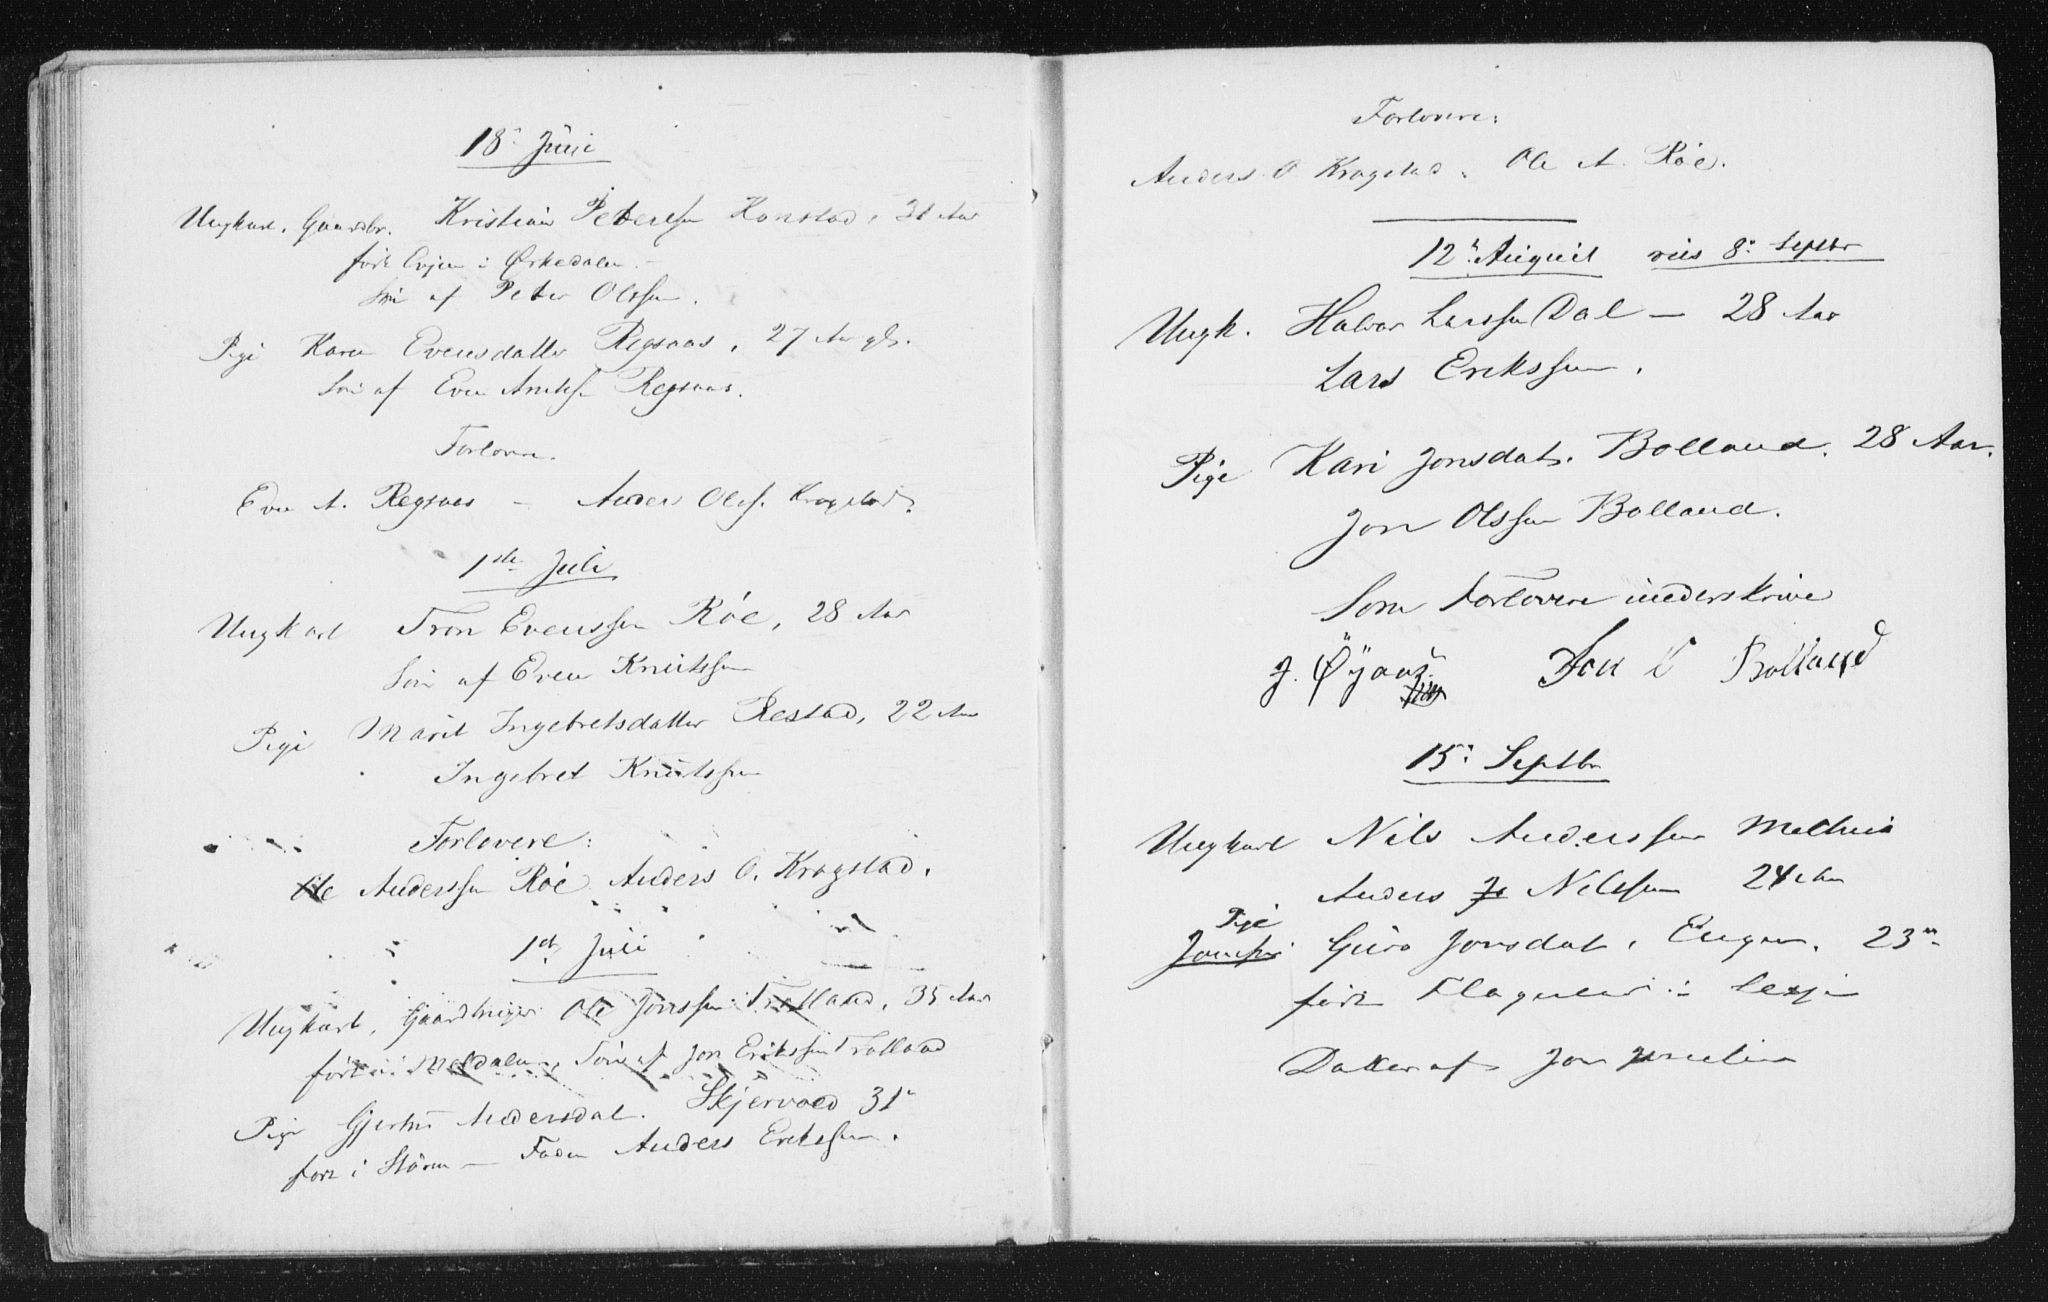 18. Juni
Ungkarl, Gaardbr. Kristian Peterssen Konstad, 31 Aar
født Evjen i Ørkedalen
Søn af Peter Olssen.
Pige Karen Evensdatter Regsaas, 27 Aar gl.
Søn af Even Regsaas.
Forlovere
Even A. Regsaas — Anders Olss. Krogstad.
1ste Juli
Ungkarl Tron Evenssen Røe, 28 Aar
Søn af Even Knutssen
Pige Marit Ingebretsdatter Restad, 22 Aar
Ingebret Knutssen
Forlovere:
Ole Anderssen Røe Anders O. Krogstad.
1st Juli
Ungkarl, Gaardbruger Ole Jonssen Trotland, 35 Aar
født i Meldalen, Søn af Jon Erikssen Trotland
Pige Gjertru Andersdat. Skjervold 31
født i Støren — Fader Anders Erikssen.
Forlovere:
Anders O Krogstad. Ole A. Røe.
12. August viis 8. Septbr
Ungk. Halvor Larssen Dal — 28 Aar
Lars Erikssen.
Pige Kari Jonsdat. Bolland. 28 Aar.
Jon Olssen Bolland.
Som Forlovere underskrive
J. Øyaas. Jon O Bolland
15. Septbr
Ungkarl Nils Anderssen Melhus
Anders Nilssen 24 Aar
Pige
Guro Jonsdat. Engen. 23
født i Lesje
Datter af Jon